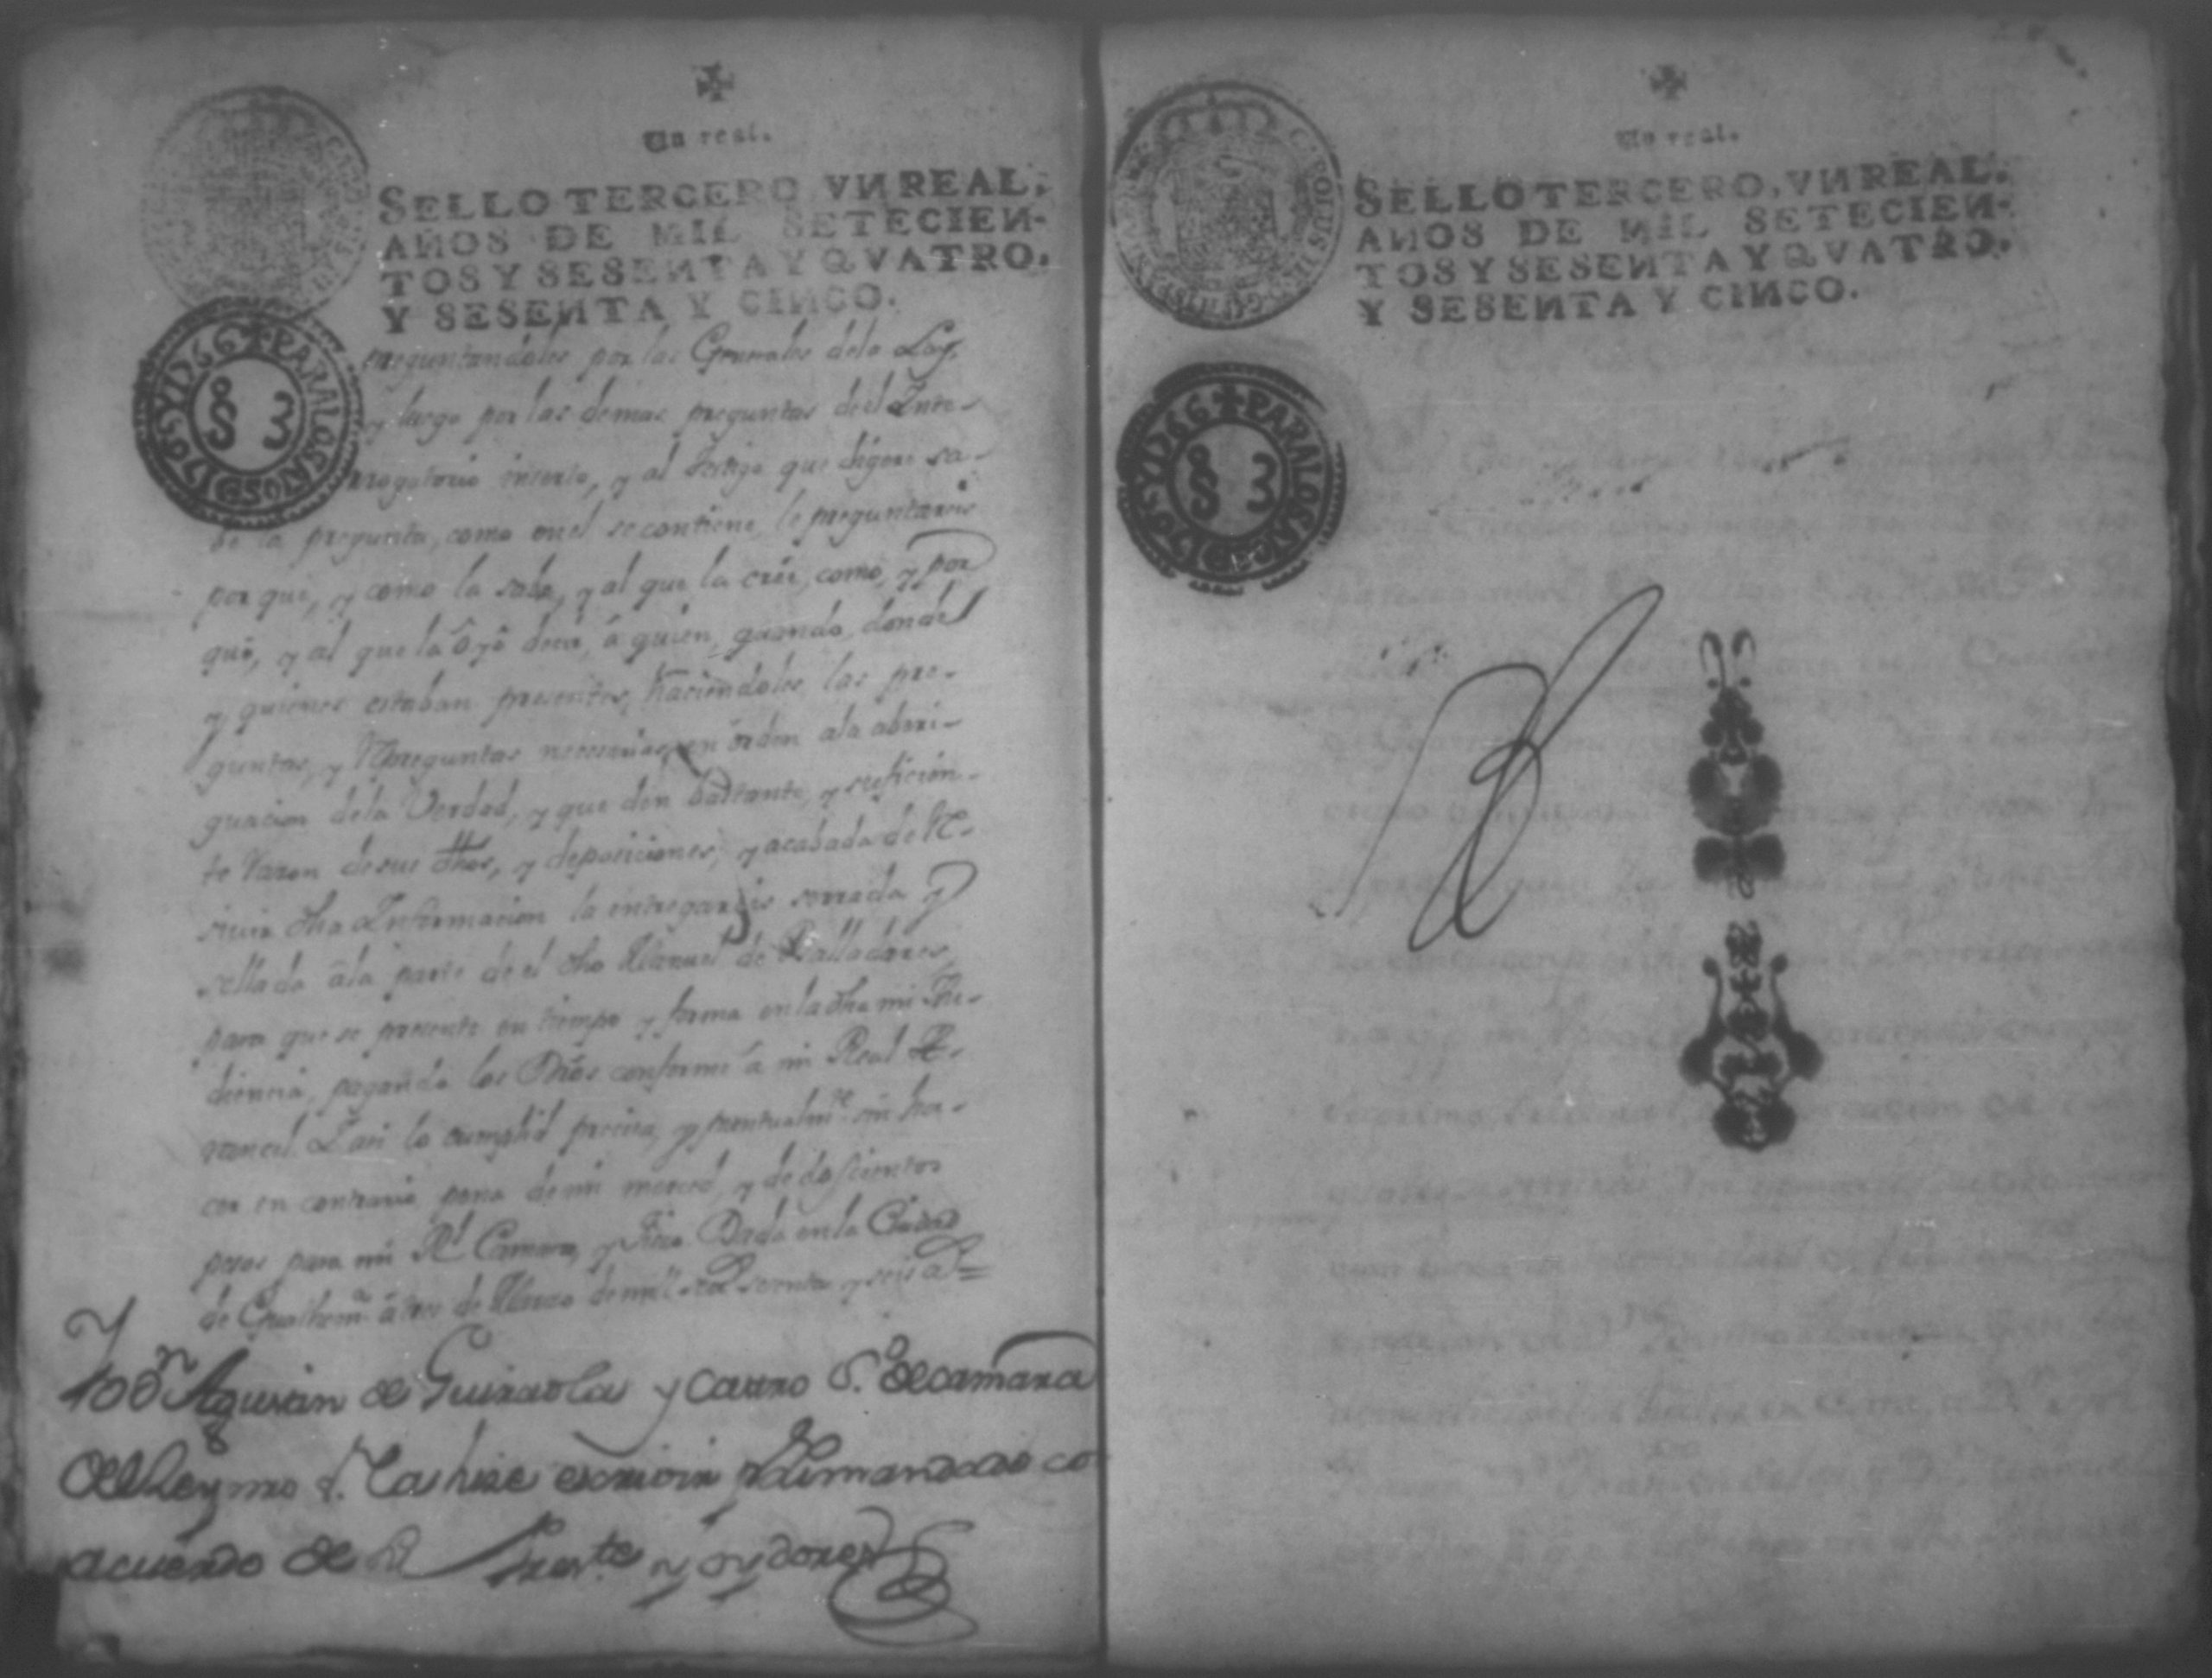 Un real.
SELLO TERCERO VN REAL,
AÑOS DE MIL SETECIEN-
TOS Y SESENTA Y QVATRO,
Y SESENTA Y CINCO.
PARA LOS AÑOS DE 1765 Y 1766
S 3
preguntandoles por las Generales dela Ley,
y luego por las demas preguntas de el Inte-
rrogatorio incerto, y al testigo que digere sa-
be la pregunta, como en el se contiene, le preguntareis
por que, y como la sabe, y al que la crée, como, y por
què, y al que la òyò decir, à quien, quando, donde
y quienes estaban presentes, haciendoles las pre-
guntas, y Rpreguntas necesarias en òrden ala aberi-
guacion dela Verdad, y que dèn bastante, y suficien-
te Razon de sus dhos, y deposiciones, y acabada de Re-
sivir dha Informacion la entregareis serrada y
sellada àla parte de el dho Manuel de Balladares,
para que se presente en tiempo y forma en la dha mi Au-
diencia, pagando los Dros conforme à mi Real A-
rancel. I asi lo cumplid precisa, y puntualmte. sin ha-
cer en contrario pena de mi merced, y de doscientos
pesos para mi Rl. Camara, y Fisco. Dada en la Ciudad
de Guathema. à tres de Marzo de mill setecs. sesenta y seis as. =
Yo Dn. Agustin de Guiraola y Castro S.º de camara
del Rey nro S. la hize escrivir pr. su mandado co
acuerdo de su Presidte. y oydores
Un real.
SELLO TERCERO, VN REAL,
AÑOS DE MIL SETECIEN-
TOS Y SESENTA Y QVATRO,
Y SESENTA Y CINCO.
PARA LOS AÑOS DE 1765 Y 1766
S 3